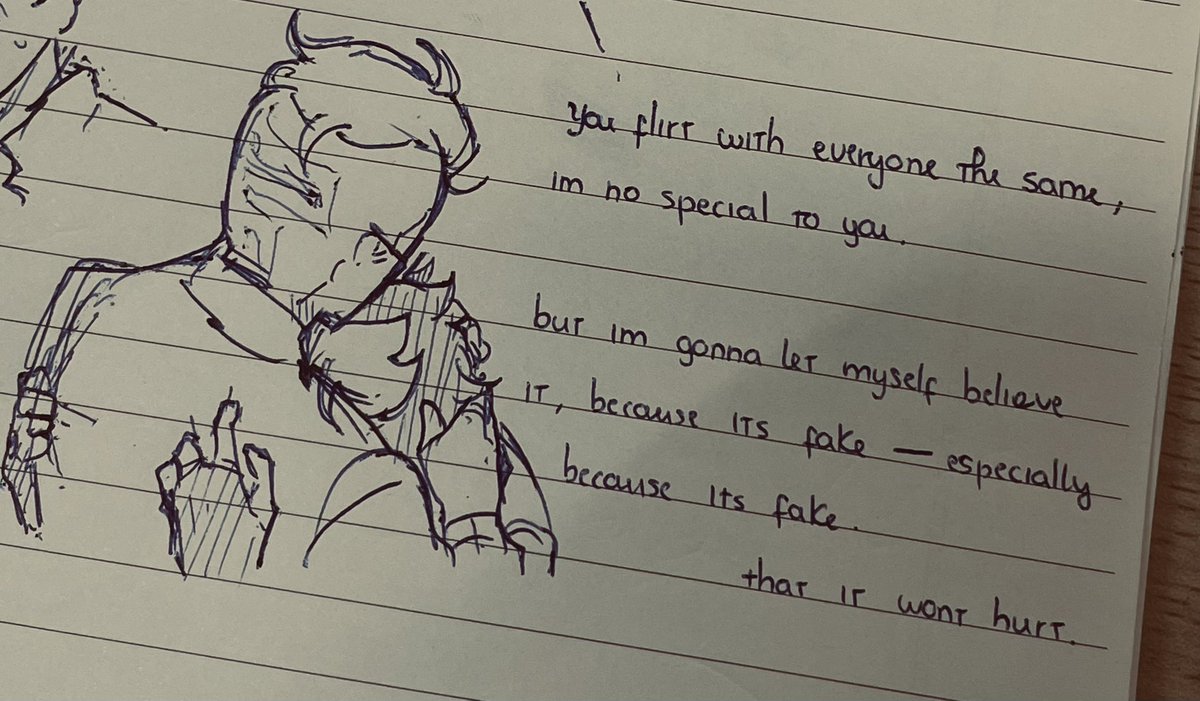 you flirt with everyone the same,
im no special to you.
but im gonna let myself believe
it, because its fake — especially
because its fake.
that it wont hurt.